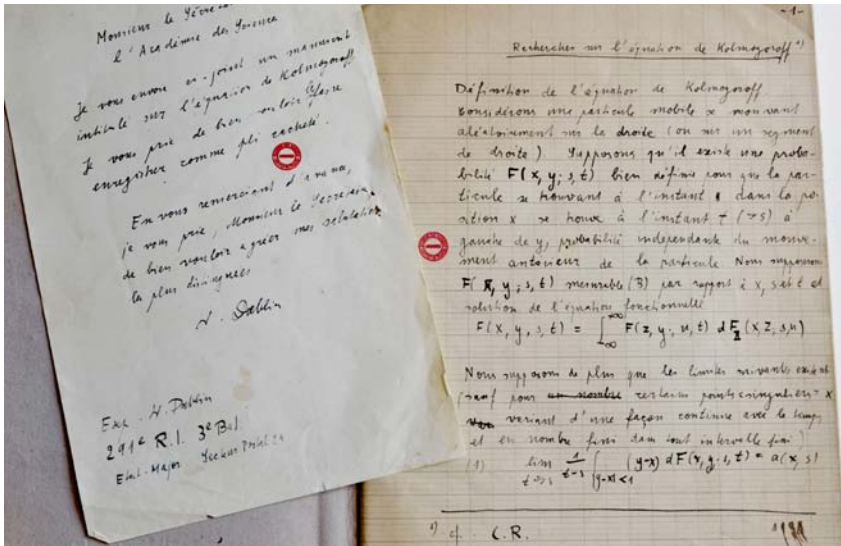 Monsieur le Secrétaire
l'Académie des Sciences
Je vous envoie ci-joint un manuscrit
intitulé sur l'équation de Kolmogoroff
Je vous prie de bien vouloir le faire
enregistrer comme pli cacheté.
En vous remerciant d'avance,
je vous prie, Monsieur le Secrétaire,
de bien vouloir agréer mes salutations
les plus distinguées
W. Doeblin
Exp. W. Doblin
291e R.I. 3e Bat.
Etat-Major Secteur Postal 24
-1-
Recherches sur l'équation de Kolmogoroff 1)
Définition de l'équation de Kolmogoroff.
Considérons une particule mobile se mouvant
aléatoirement sur la droite (ou sur un segment
de droite). Supposons qu'il existe une proba-
bilité F(x, y; s, t) bien définie pour que la par-
ticule se trouvant à l'instant s dans la po-
sition x se trouve à l'instant t (>s) à
gauche de y, probabilité indépendante du mouve-
ment antérieur de la particule. Nous supposerons
F(x, y; s, t) mesurable (B) par rapport à x, s et t et
solution de l'équation fonctionnelle
F(x, y, s, t) = ∫_{-∞}^{+∞} F(z, y; u, t) dF_z(x, z, s, u)
Nous supposons de plus que les limites suivantes existent
(sauf pour certains points singuliers x
variant d'une façon continue avec le temps
et en nombre fini dans tout intervalle fini)
(1) lim_{t→s} 1/(t-s) ∫_{|y-x|<1} (y-x) dF(x, y; s, t) = a(x, s)
1) cf. C.R.